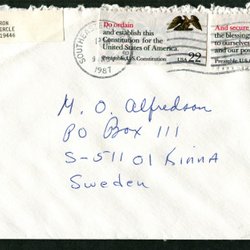 RON
ERCLE
19446
SOUTHEAST
1987
Do ordain
and establish this
Constitution for the
United States of America.
Preamble, U.S. Constitution USA 22
And secure
the blessing
to ourselve
and our po
Preamble, U.S
M. O. Alfredson
PO Box 111
S-511 01 Kinna
Sweden